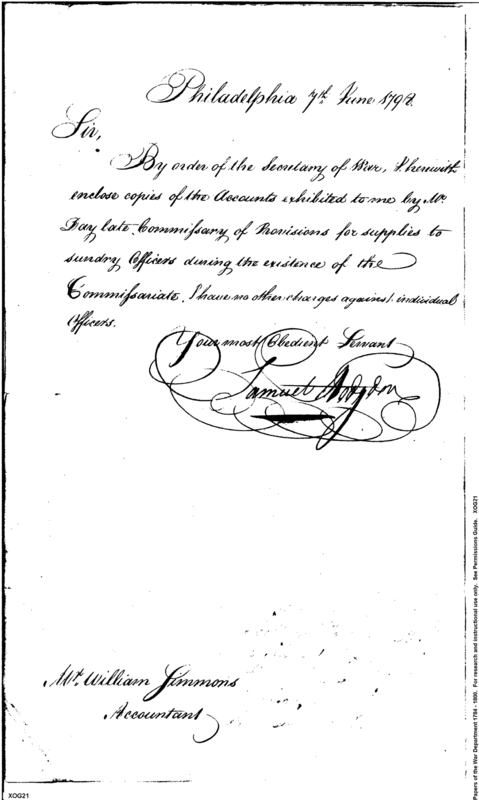 Philadelphia 7th June 1798.
Sir,
By order of the Secretary of War, I herewith
enclose copies of the Accounts exhibited to me by Mr
Day late Commissary of Provisions for supplies to
sundry Officers during the existence of the
Commissariate, I have no other charges against individual
Officers.
Your most Obedient Servant
Samuel Hodgdon
Mr. William Simmons
Accountant
XOG21
Papers of the War Department 1784 - 1800. For research and instructional use only. See Permissions Guide. XOG21